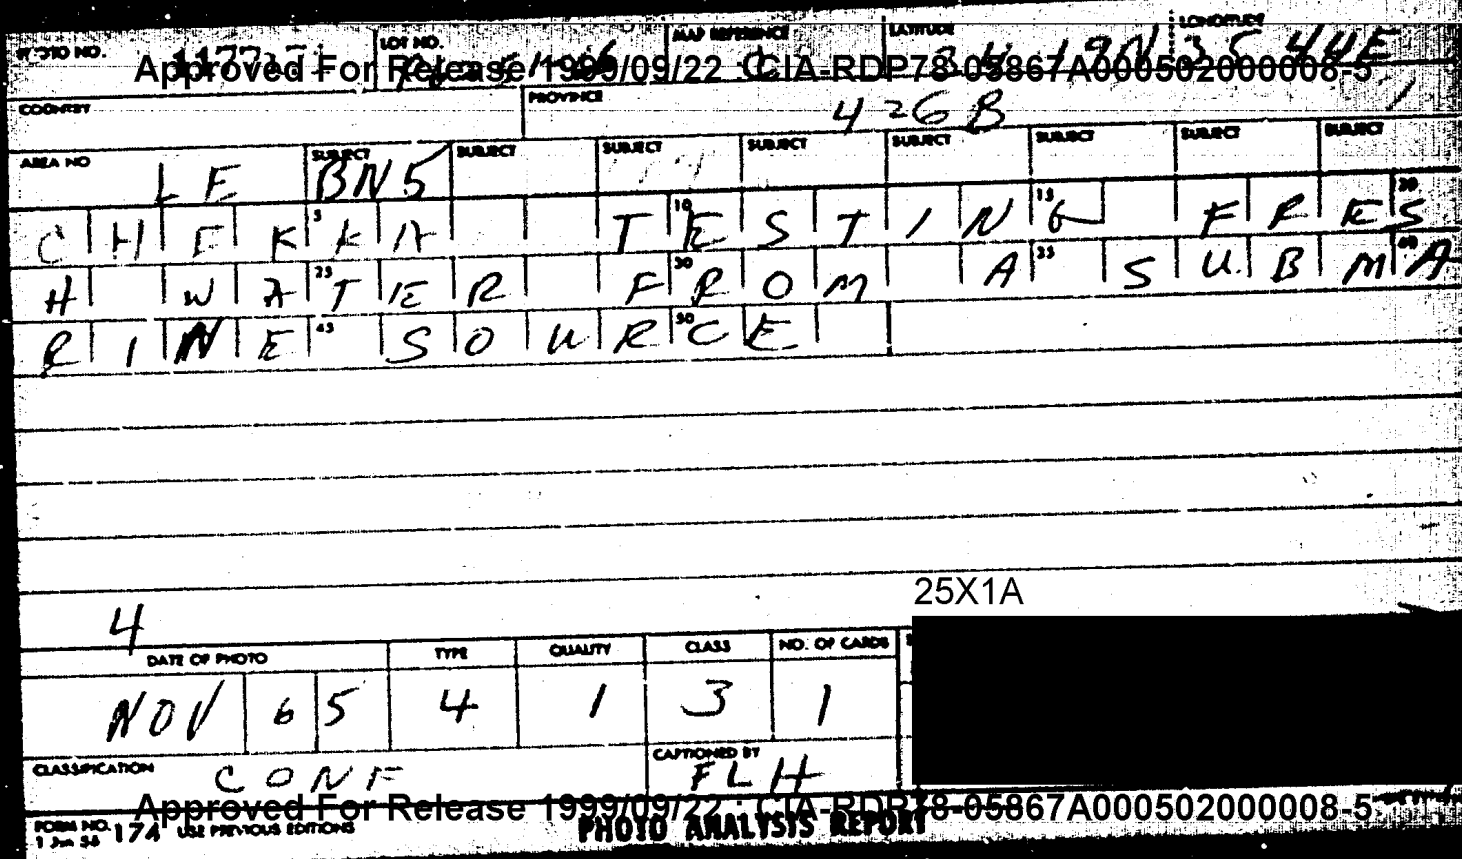 PHOTO NO. LOT NO. MAP REFERENCE LATITUDE LONGITUDE
34 19N 35 44E
Approved For Release 1999/09/22 : CIA-RDP78-05867A000502000008-5
COUNTRY PROVINCE 426B
AREA NO SUBJECT SUBJECT SUBJECT SUBJECT SUBJECT SUBJECT SUBJECT SUBJECT
LE BN5
5 10 15 20
CHEKKA TESTING FRES
25 30 35 40
H WATER FROM A SUBMA
45 50
RINE SOURCE
25X1A
4
DATE OF PHOTO TYPE QUALITY CLASS NO. OF CARDS
NOV 65 4 1 3 1
CLASSIFICATION CONF CAPTIONED BY FLH
Approved For Release 1999/09/22 : CIA-RDP78-05867A000502000008-5
FORM NO. 174 USE PREVIOUS EDITIONS PHOTO ANALYSIS REPORT
1 Jun 56